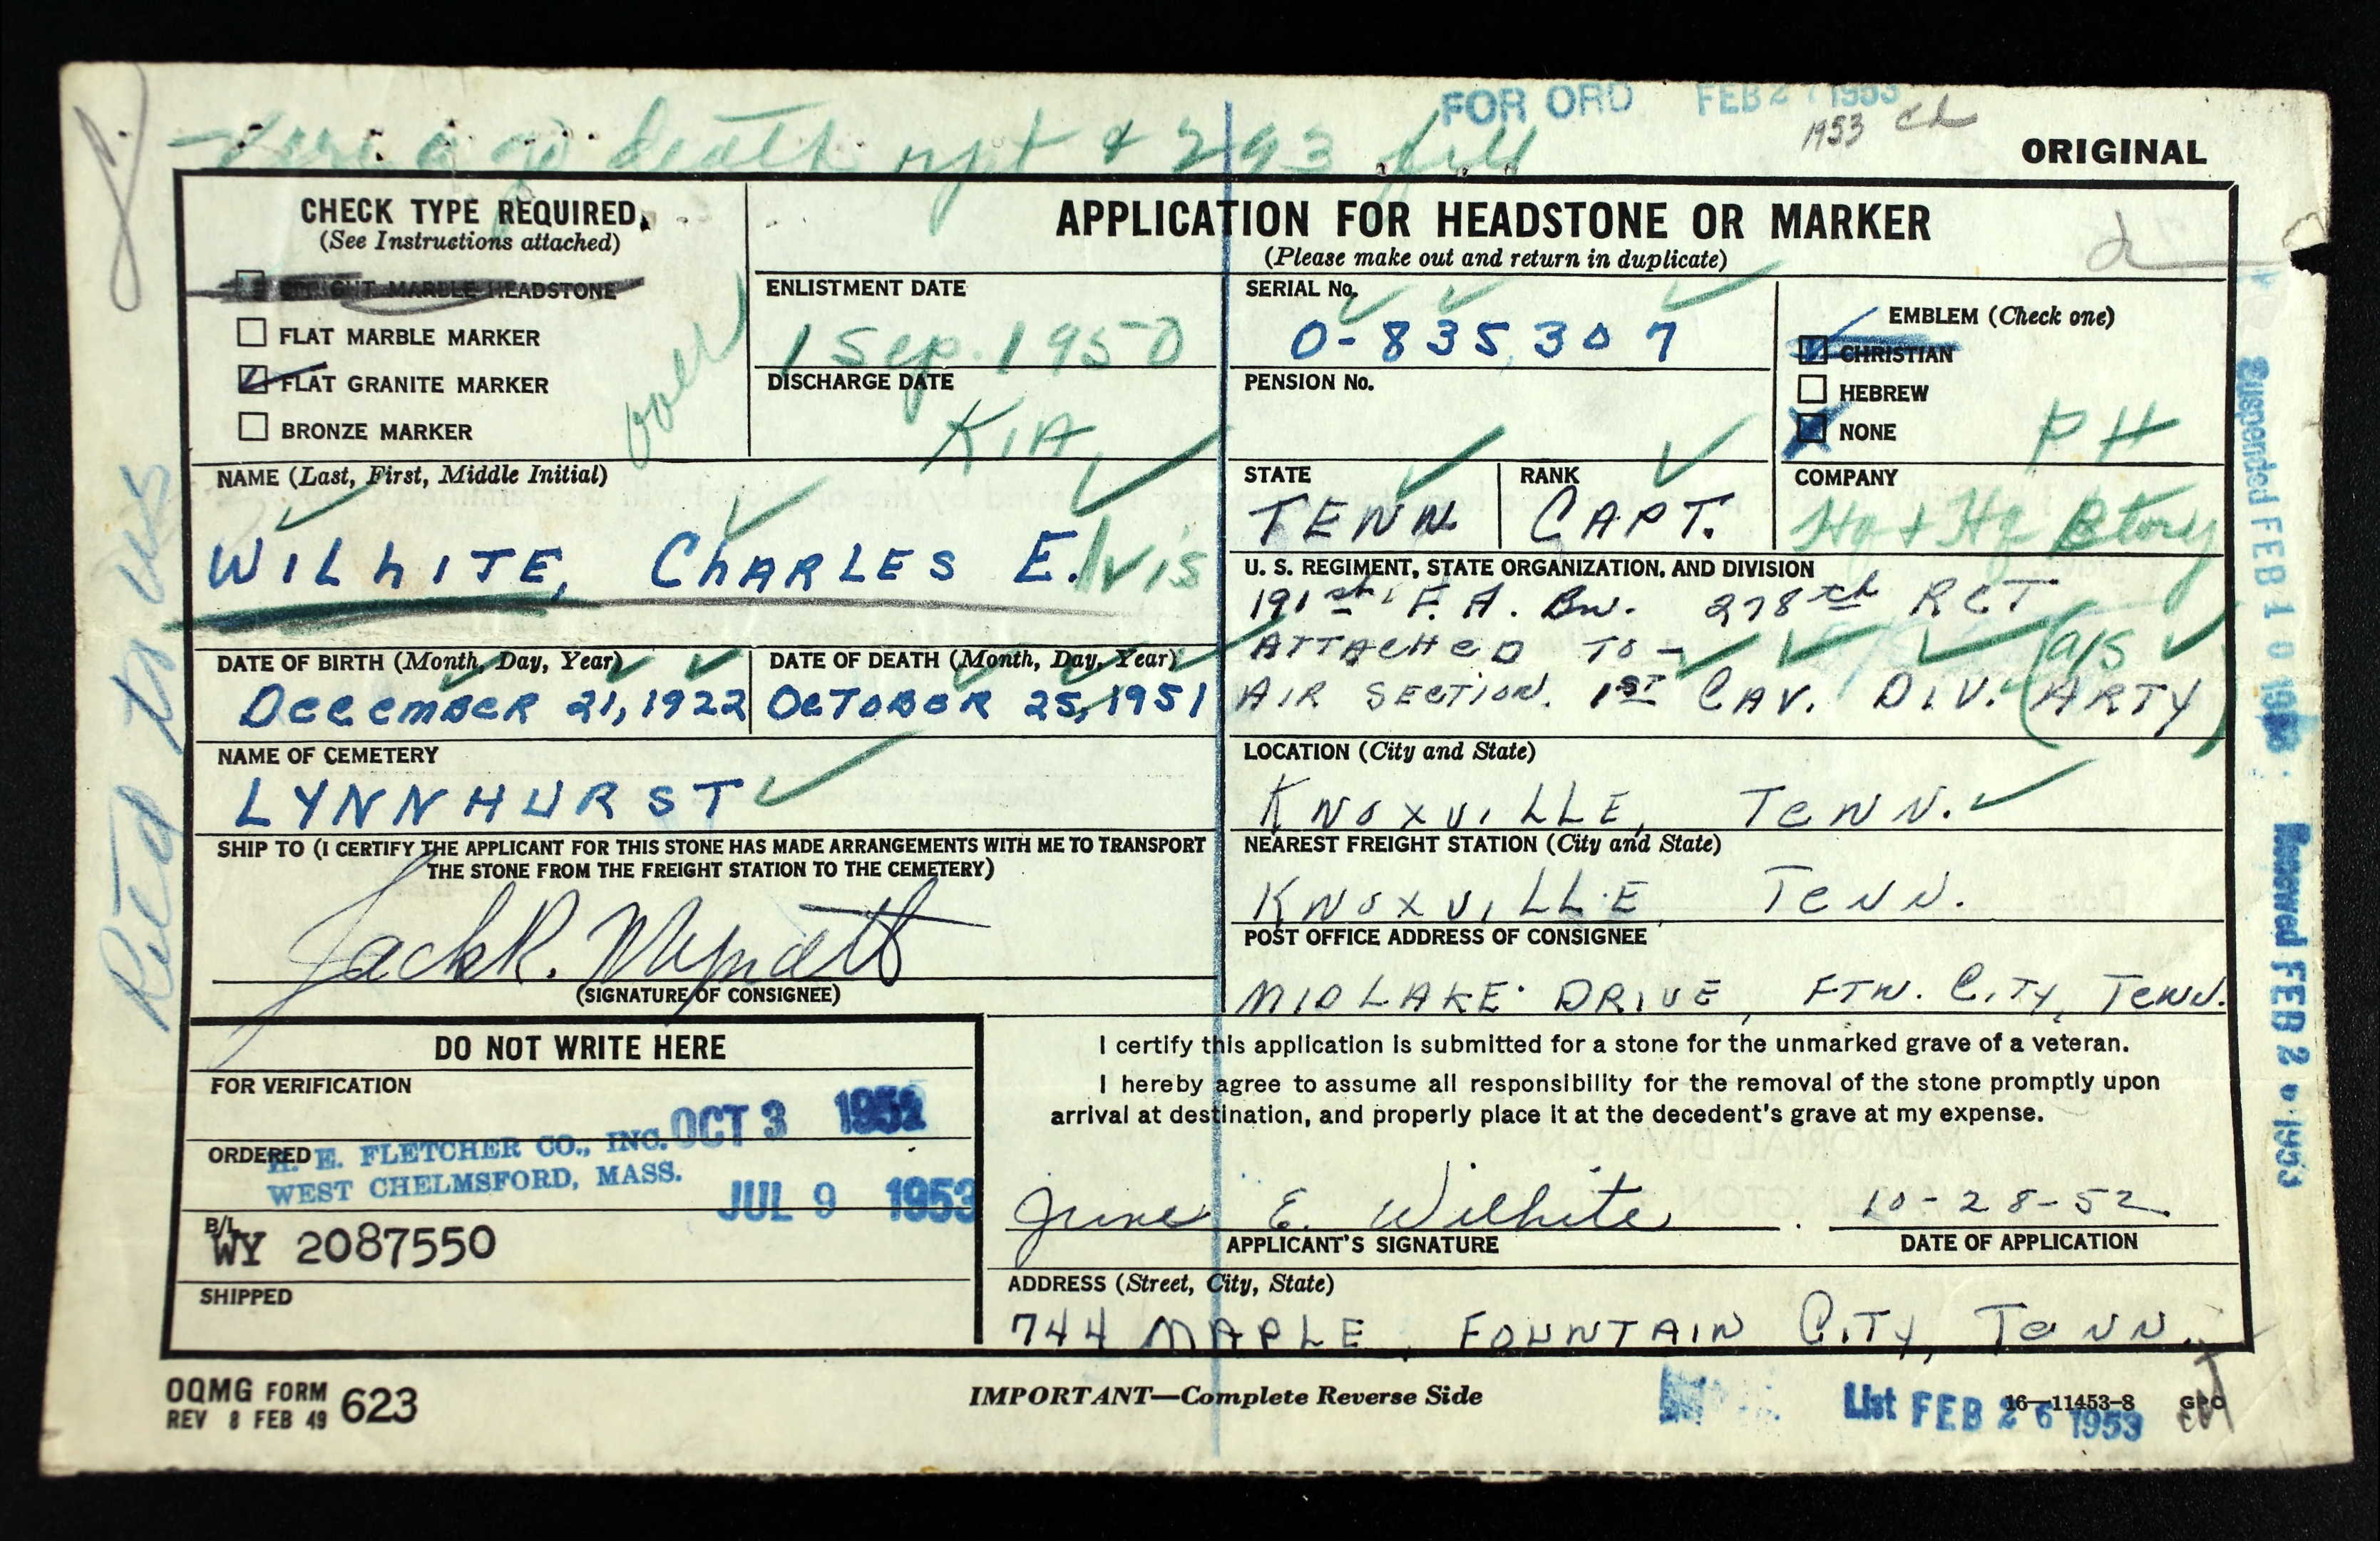 FOR ORD FEB 2 1953
1953
death rpt & 293
ORIGINAL
CHECK TYPE REQUIRED
(See Instructions attached)
UPRIGHT MARBLE HEADSTONE
FLAT MARBLE MARKER
FLAT GRANITE MARKER
BRONZE MARKER
APPLICATION FOR HEADSTONE OR MARKER
(Please make out and return in duplicate)
ENLISTMENT DATE
1 Sep. 1950
DISCHARGE DATE
KIA
SERIAL No.
O-835307
PENSION No.
EMBLEM (Check one)
CHRISTIAN
HEBREW
NONE
PH
NAME (Last, First, Middle Initial)
WILhITE, ChARLES E.lvis
STATE
TENN
RANK
CAPT.
COMPANY
Hq + Hq Btory
U. S. REGIMENT, STATE ORGANIZATION, AND DIVISION
191st F. A. Bn. 278th RCT
ATTACHeD TO - a/s
AIR SECTION. 1ST CAV. DIV. (ARTY)
DATE OF BIRTH (Month, Day, Year)
DeCemBeR 21, 1922
DATE OF DEATH (Month, Day, Year)
OcTOBeR 25, 1951
NAME OF CEMETERY
LYNNHURST
LOCATION (City and State)
KNOXVILLE, TeNN.
SHIP TO (I CERTIFY THE APPLICANT FOR THIS STONE HAS MADE ARRANGEMENTS WITH ME TO TRANSPORT
THE STONE FROM THE FREIGHT STATION TO THE CEMETERY)
Jack R. Mynatt
(SIGNATURE OF CONSIGNEE)
NEAREST FREIGHT STATION (City and State)
KNOXVILLE, TeNN.
POST OFFICE ADDRESS OF CONSIGNEE
MIDLAKE DRIVE, FTN. CITY, TeNN.
DO NOT WRITE HERE
FOR VERIFICATION
OCT 3 1952
ORDERED
H. E. FLETCHER CO., INC.
WEST CHELMSFORD, MASS.
JUL 9 1953
B/L
WY 2087550
SHIPPED
I certify this application is submitted for a stone for the unmarked grave of a veteran.
I hereby agree to assume all responsibility for the removal of the stone promptly upon
arrival at destination, and properly place it at the decedent's grave at my expense.
June E. Wilhite
10-28-52
APPLICANT'S SIGNATURE
DATE OF APPLICATION
ADDRESS (Street, City, State)
744 MAPLE, FOUNTAIN CITY, TeNN.
OQMG FORM 623
REV 8 FEB 49
IMPORTANT—Complete Reverse Side
16—11453-8 GPO
List FEB 26 1953
Suspended FEB 10 1953
FEB 2 1953